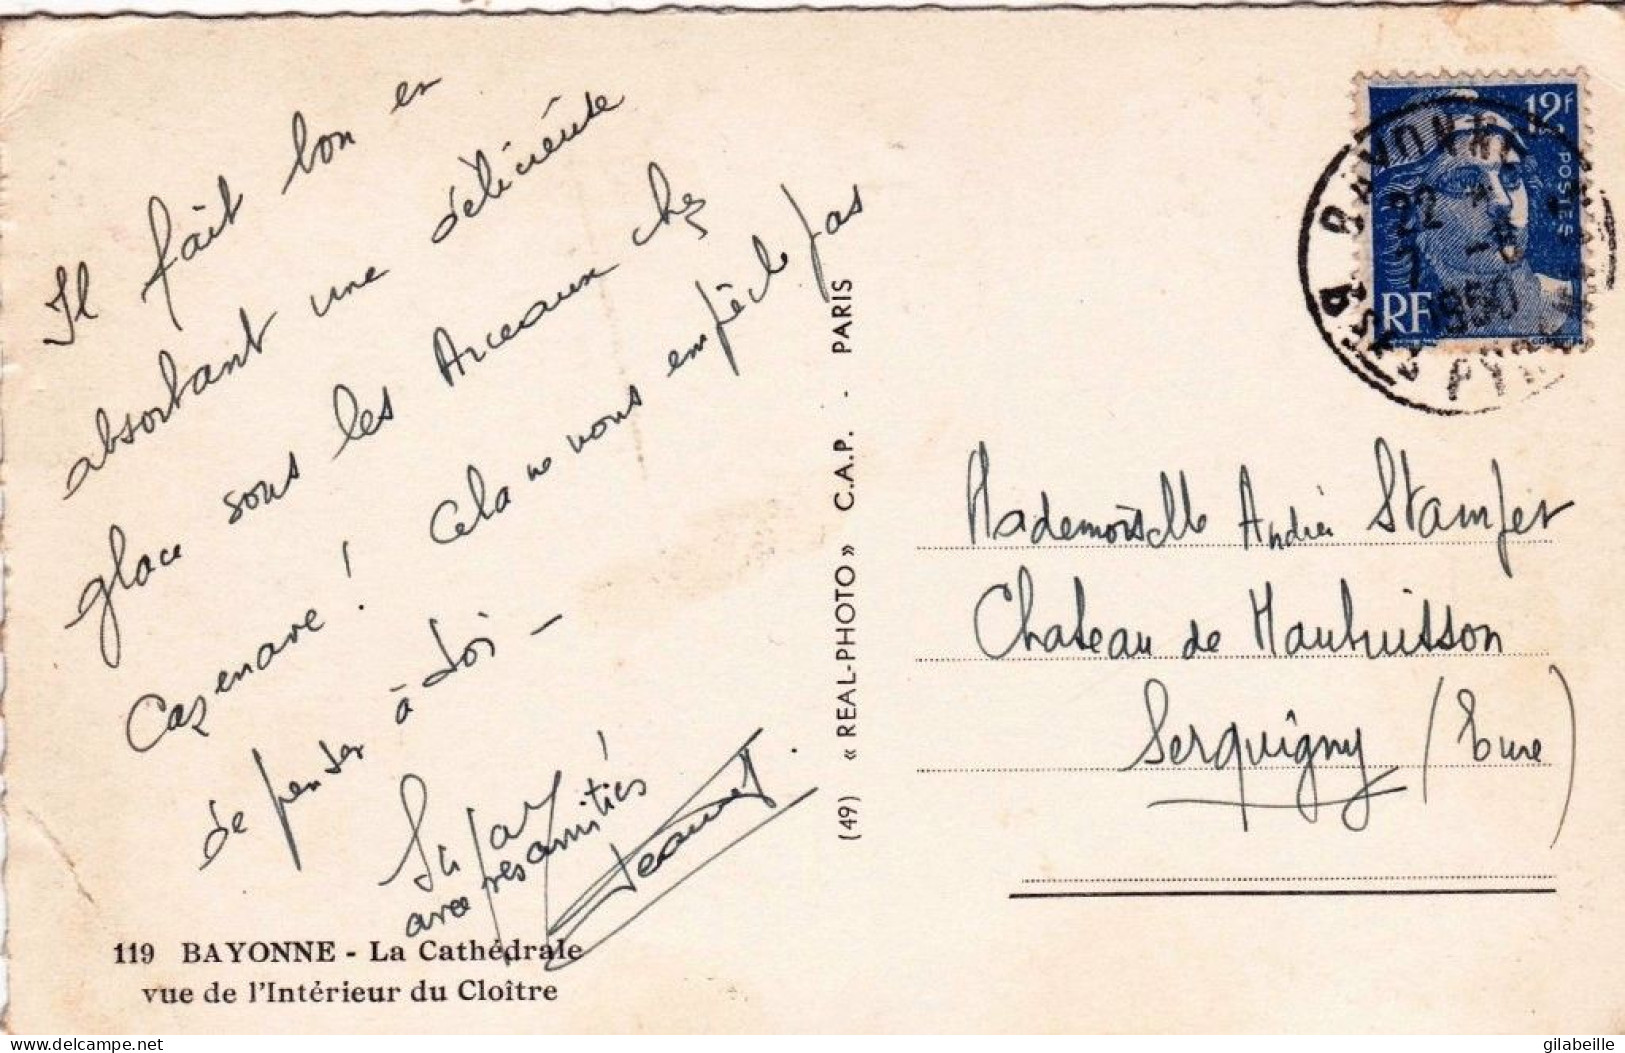 Il fait bon en
absorbant une délicieuse
glace sous les Arceaux chez
Cazenave ! Cela ne nous empêche pas
de penser à toi -
avec amitiés
Jeannot
119 BAYONNE - La Cathédrale
vue de l'Intérieur du Cloître
(49) « REAL-PHOTO » C.A.P. - PARIS
12F
POSTES
RF
BAYONNE
22
7 -6
1950
Bses PYRENEES
Mademoiselle Andrée Stampfer
Chateau de Maubuisson
Serquigny (Eure)
delcampe.net
gilabeille